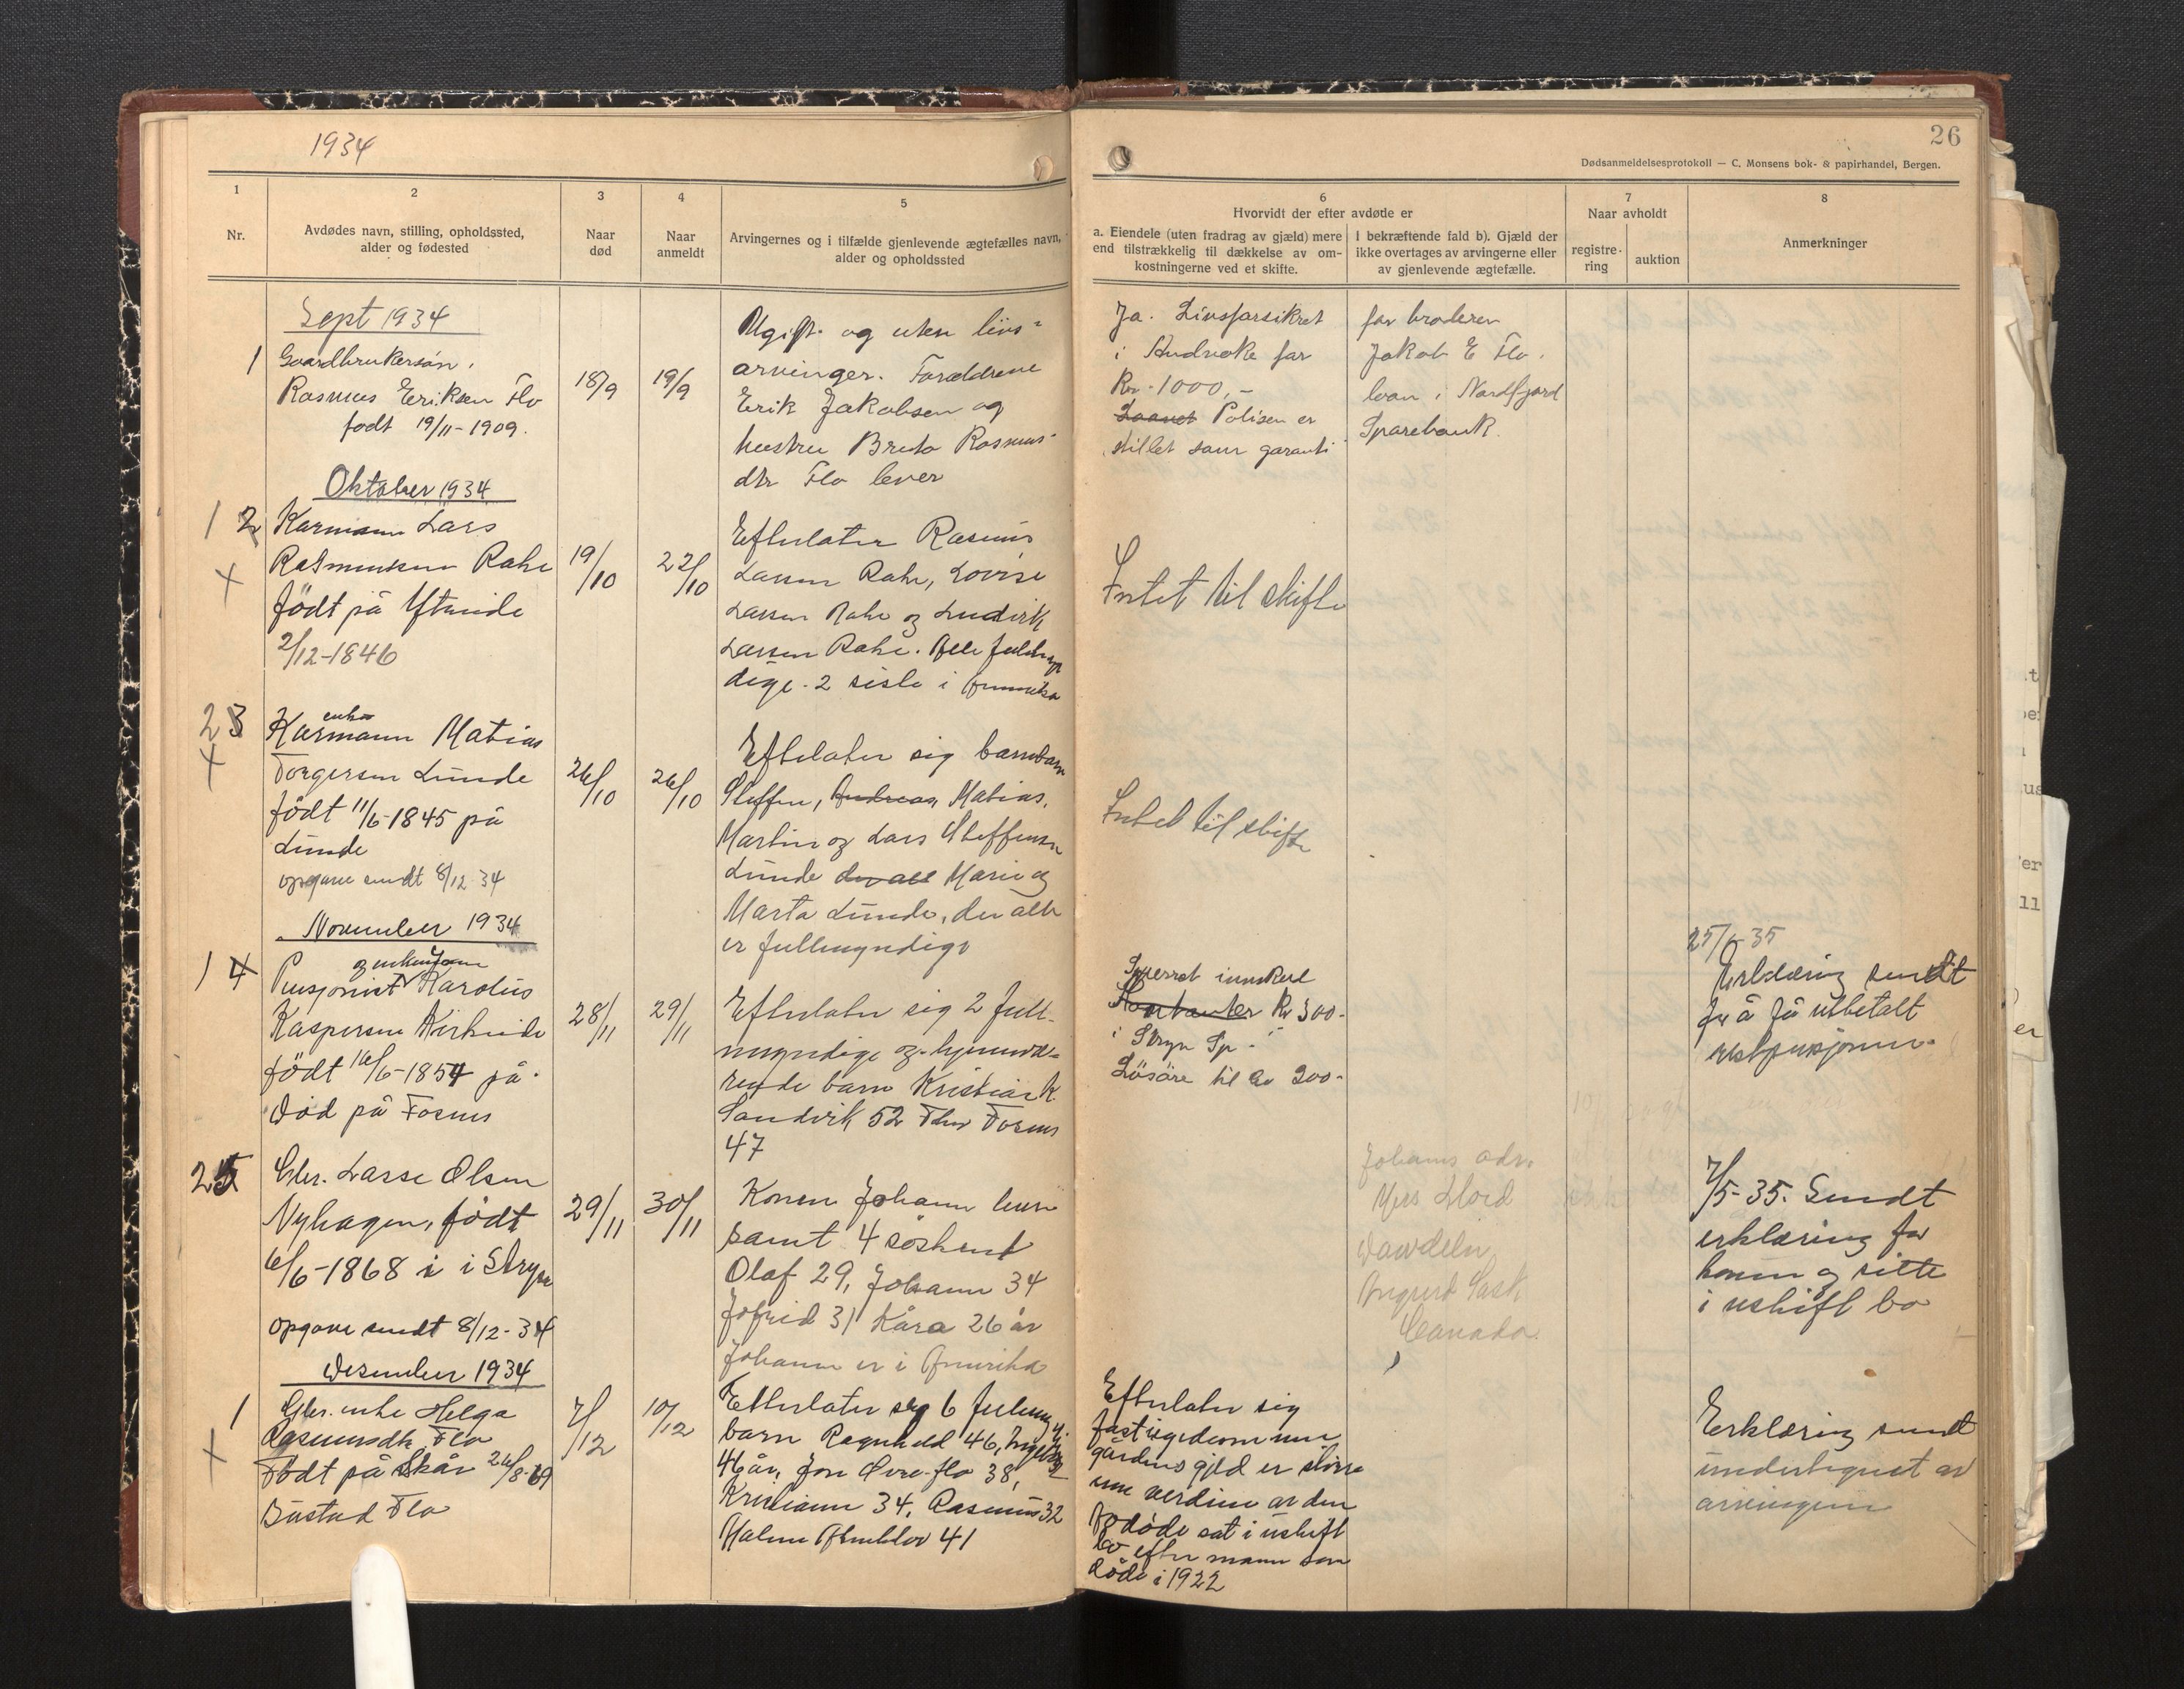 1934
26
Dødsanmeldelsesprotokoll — C. Monsens bok- & papirhandel, Bergen.
1
Nr.
2
Avdødes navn, stilling, opholdssted,
alder og fødested
3
Naar
død
4
Naar
anmeldt
5
Arvingernes og i tilfælde gjenlevende ægtefælles navn,
alder og opholdssted
6
Hvorvidt der efter avdøde er
a. Eiendele (uten fradrag av gjæld) mere
end tilstrækkelig til dækkelse av om-
kostningerne ved et skifte.
I bekræftende fald b). Gjæld der
ikke overtages av arvingerne eller
av gjenlevende ægtefælle.
7
Naar avholdt
registre-
ring
auktion
8
Anmerkninger
Sept 1934
1
Gaardbrukersøn.
Rasmus Eriksen Flo
født 19/11-1909.
18/9
19/9
Ugift og uten livs-
arvinger. Forældrene
Erik Jakobsen og
hustru Brita Rasmus-
dtr Flo lever
Ja. Livsforsikret
i Andvake for
Kr. 1000,-
Laanet Polisen er
stillet som garanti
for broderen
Jakob E Flo.
loan i Nordfjord
Sparebank.
Oktober 1934
1 2
Karmann Lars
Rasmussen Rake
født på Ytreeide
2/12-1846
19/10
22/10
Efterlater Rasmus
Larsen Rake, Lovise
Larsen Rake og Ludvik
Larsen Rake. Alle fuldmyn
dige. 2 siste i Amerika
Intet til skifte
2 3
enke
Karmann Matias
Torgersen Lunde
født 11/6-1845 på
Lunde
opgave sendt 8/12-34
26/10
26/10
Efterlater sig barnebarn
Steffen, Andreas, Matias,
Martin og Lars Steffensen
Lunde der all Marie og
Marta Lunde, der alle
er fullmyndige
Intet til skifte
November 1934
1 4
og enkemann
Pensjonist Karolus
Kaspersen Kirkeide
født 16/6-1854 på
Død på Fosnes
28/11
29/11
Efterlater sig 2 full-
myndige og hjemmevæ-
rende barn Kristian K
Sandvik 52 Fosnes
47
Sperret innskud
Kontanter Kr 300-
i Stryn Sp.
Løsøre til kr 200-
25/6-35
Erklæring sendt
for å få utbetalt
restpensjonen.
2 5
Gbr. Lasse Olsen
Nyhagen, født
6/6-1868 i i Stryn
opgave sendt 8/12-34
29/11
30/11
Konen Johanne lever
samt 4 søskend
Olaf 29, Johanne 34
Jofrid 31 Kåra 26 år
Johanne er i Amerika
Johannes adr.
Mrs
Sask
Canada.
7/5-35. Sendt
erklæring for
konen og sitte
i uskift bo
Desember 1934
1
Gbr. enke Helga
Rasmusdtr Flo
Født på Skår 26/8-69
Bustad Flo
7/12
10/12
Efterlater sig 6 fullmynd.
barn Ragnhild 46,
46 år, Jon Øvre-flo 38,
Kristianne 34, Rasmus 32
41
Efterlater sig
fast eigedom men
gårdens gjeld er større
enn verdien av den
Avdøde sat i uskift
bo efter mann som
døde i 1922
Erklæring sendt
undertegnet av
arvingene